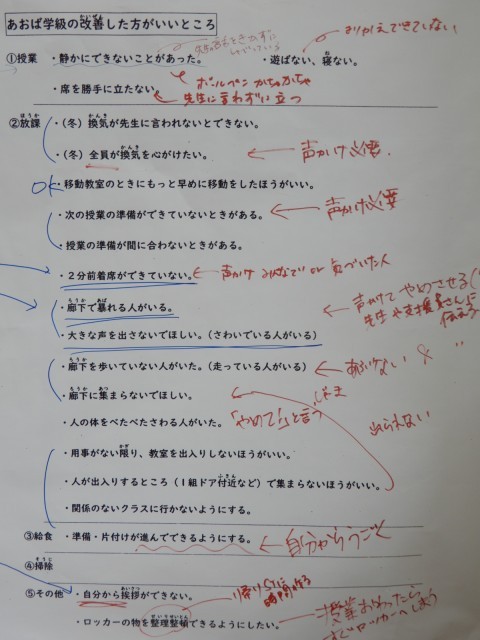 あおば学級の改善した方がいいところ
①授業 ・静かにできないことがあった。 ・遊ばない、寝ない。
きりかえできていない
・席を勝手に立たない
ボールペン カチャカチャ
先生に言わずに立つ
②放課 ・(冬)換気が先生に言われないとできない。
・(冬)全員が換気を心がけたい。
声かけ必要
OK ・移動教室のときにもっと早めに移動をしたほうがいい。
・次の授業の準備ができていないときがある。
声かけ必要
・授業の準備が間に合わないときがある。
・2分前着席ができていない。
声かけ みんなで or 気づいた人
・廊下で暴れる人がいる。
声かけて やめさせる
先生や支援員さんに伝える
・大きな声を出さないでほしい。(さわいでいる人がいる)
・廊下を歩いていない人がいた。(走っている人がいる)
あぶない
・廊下に集まらないでほしい。
じゃま
・人の体をべたべたさわる人がいた。
「やめて!」と言う
出られない
・用事がない限り、教室を出入りしないほうがいい。
・人が出入りするところ(1組ドア付近など)で集まらないほうがいい。
・関係のないクラスに行かないようにする。
③給食 ・準備・片付けが進んでできるようにする。
自分からうごく
④掃除
⑤その他 ・自分から挨拶ができない。
・ロッカーの物を整理整頓できるようにしたい。
授業おわったら